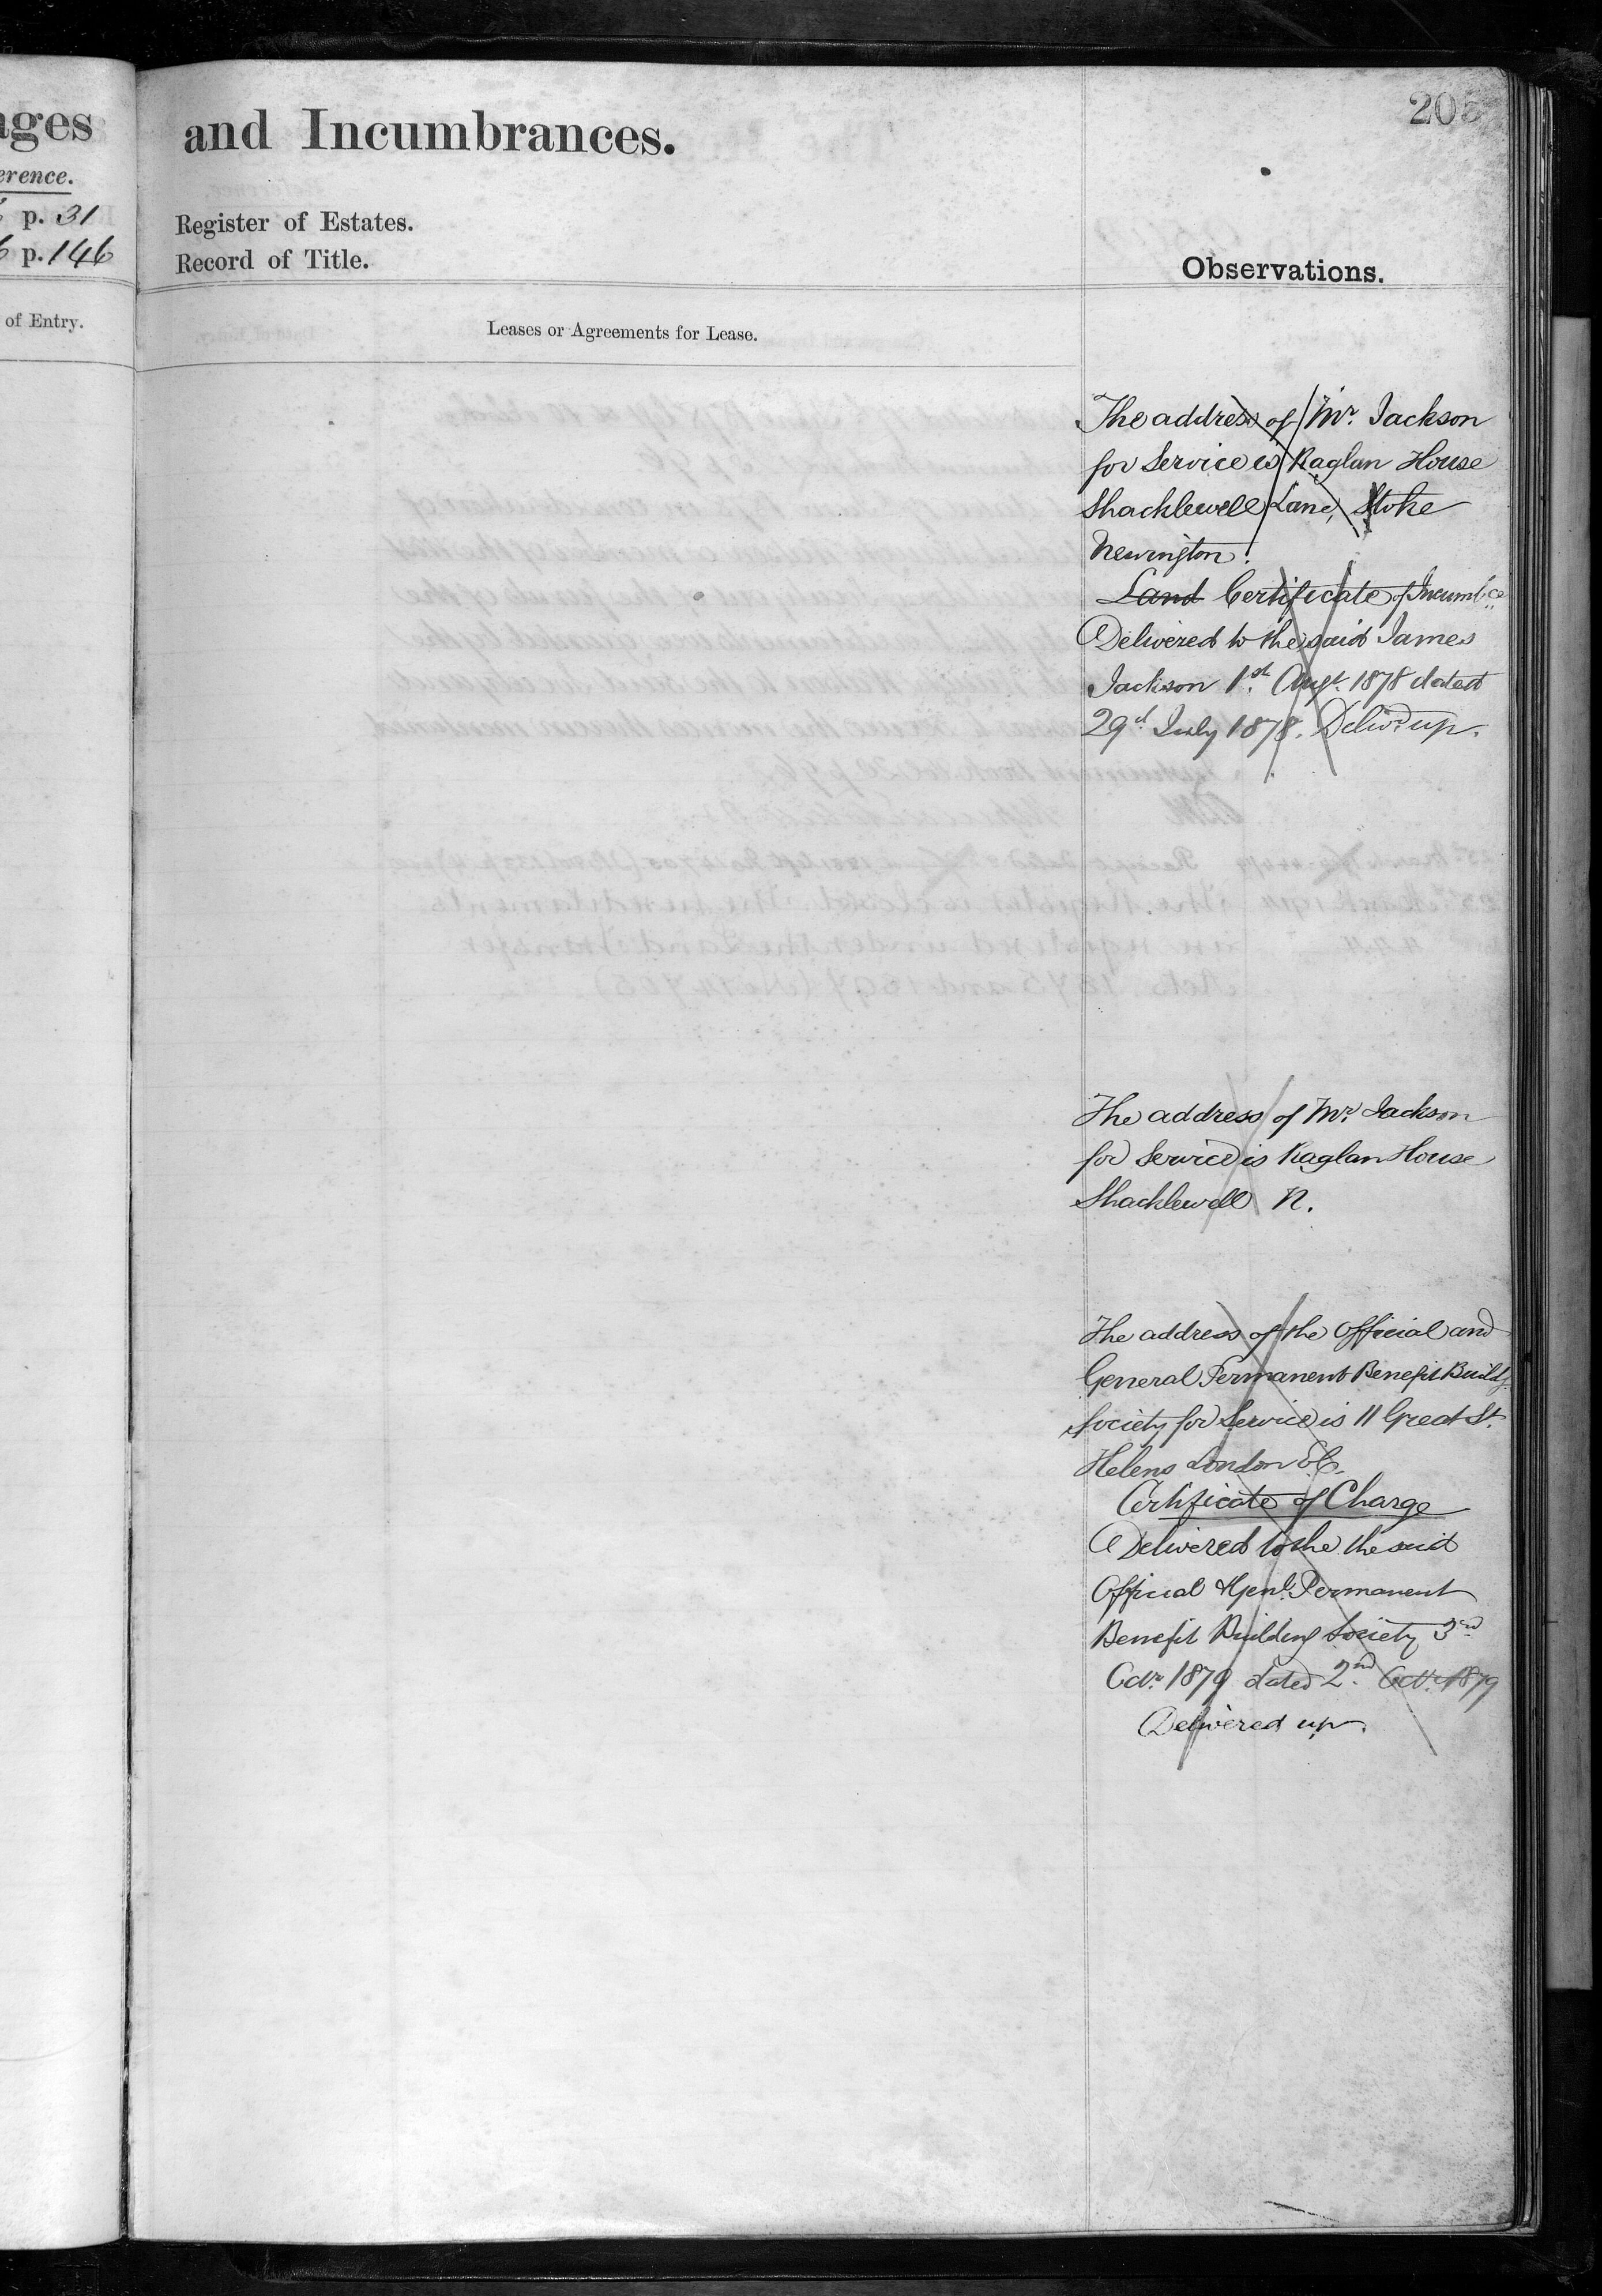 ages
erence.
p. 31
6 p. 146
of Entry.
205
and Incumbrances.
Register of Estates.
Record of Title.
Observations.
Leases or Agreements for Lease.
The address of Mr. Jackson
for Service is Raglan House
Shacklewell Lane, Stoke
Newington.
Land Certificate of Incumbce
Delivered to the said James
Jackson 1st. Augt. 1878 dated
29th July 1878. Delivd up.
The address of Mr. Jackson
for Service is Raglan House
Shacklewell N.
The address of the Official and
General Permanent Benefit Buildg
Society for Service is 11 Great St.
Helens London E.C.
Certificate of Charge
Delivered to the the said
Official & Genl. Permanent
Benefit Building Society 3rd
Octr. 1879 dated 2nd. Octr. 1879
Delivered up.